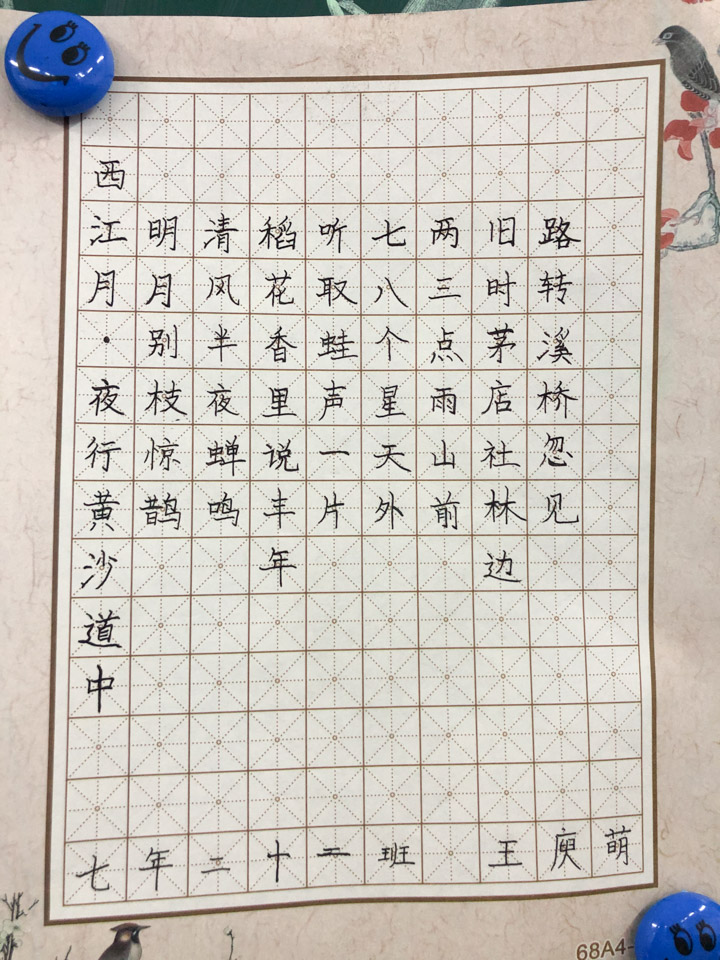 西江月·夜行黄沙道中
明月别枝惊鹊
清风半夜蝉鸣
稻花香里说丰年
听取蛙声一片
七八个星天外
两三点雨山前
旧时茅店社林边
路转溪桥忽见
七年二十二班 王庾萌
68A4-